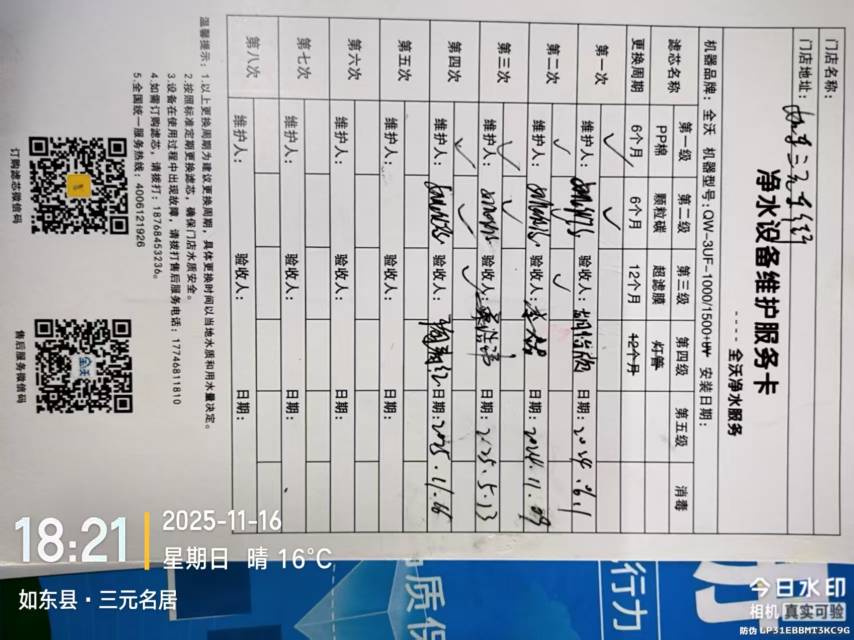 净水设备维护服务卡
---- 全沃净水服务
门店名称：
门店地址：
机器品牌：全沃 机器型号：QW-3UF-1000/1500+UV 安装日期：
滤芯名称 第一级 第二级 第三级 第四级 第五级 消毒
PP棉 颗粒碳 超滤膜 灯管
更换周期 6个月 6个月 12个月 12个月
第一次 ✓ ✓
维护人： 验收人： 日期：2024.6.1
第二次 ✓ ✓
维护人： 验收人： 日期：2024.11.09
第三次 ✓ ✓
维护人： 验收人： 日期：2025.5.13
第四次 ✓ ✓ ✓
维护人： 验收人： 日期：2025.11.16
第五次
维护人： 验收人： 日期：
第六次
维护人： 验收人： 日期：
第七次
维护人： 验收人： 日期：
第八次
维护人： 验收人： 日期：
温馨提示：1.以上更换周期为建议更换周期，具体更换时间以当地水质和用水量决定。
2.按照标准定期更换滤芯，确保门店水质安全。
3.设备在使用过程中出现故障，请拨打售后服务电话：17746811810
4.如需订购滤芯，请拨打：18768453236。
5.全国统一服务热线：4006121926
订购滤芯微信码
全沃
售后服务微信码
质保
行力
18:21
2025-11-16
星期日 晴 16°C
如东县·三元名居
今日水印
相机 真实可验
防伪 LP31EBBMT3KC9G